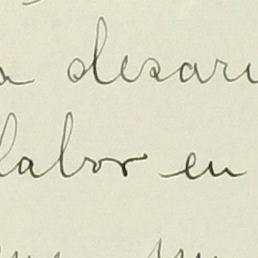 a desari
labor en